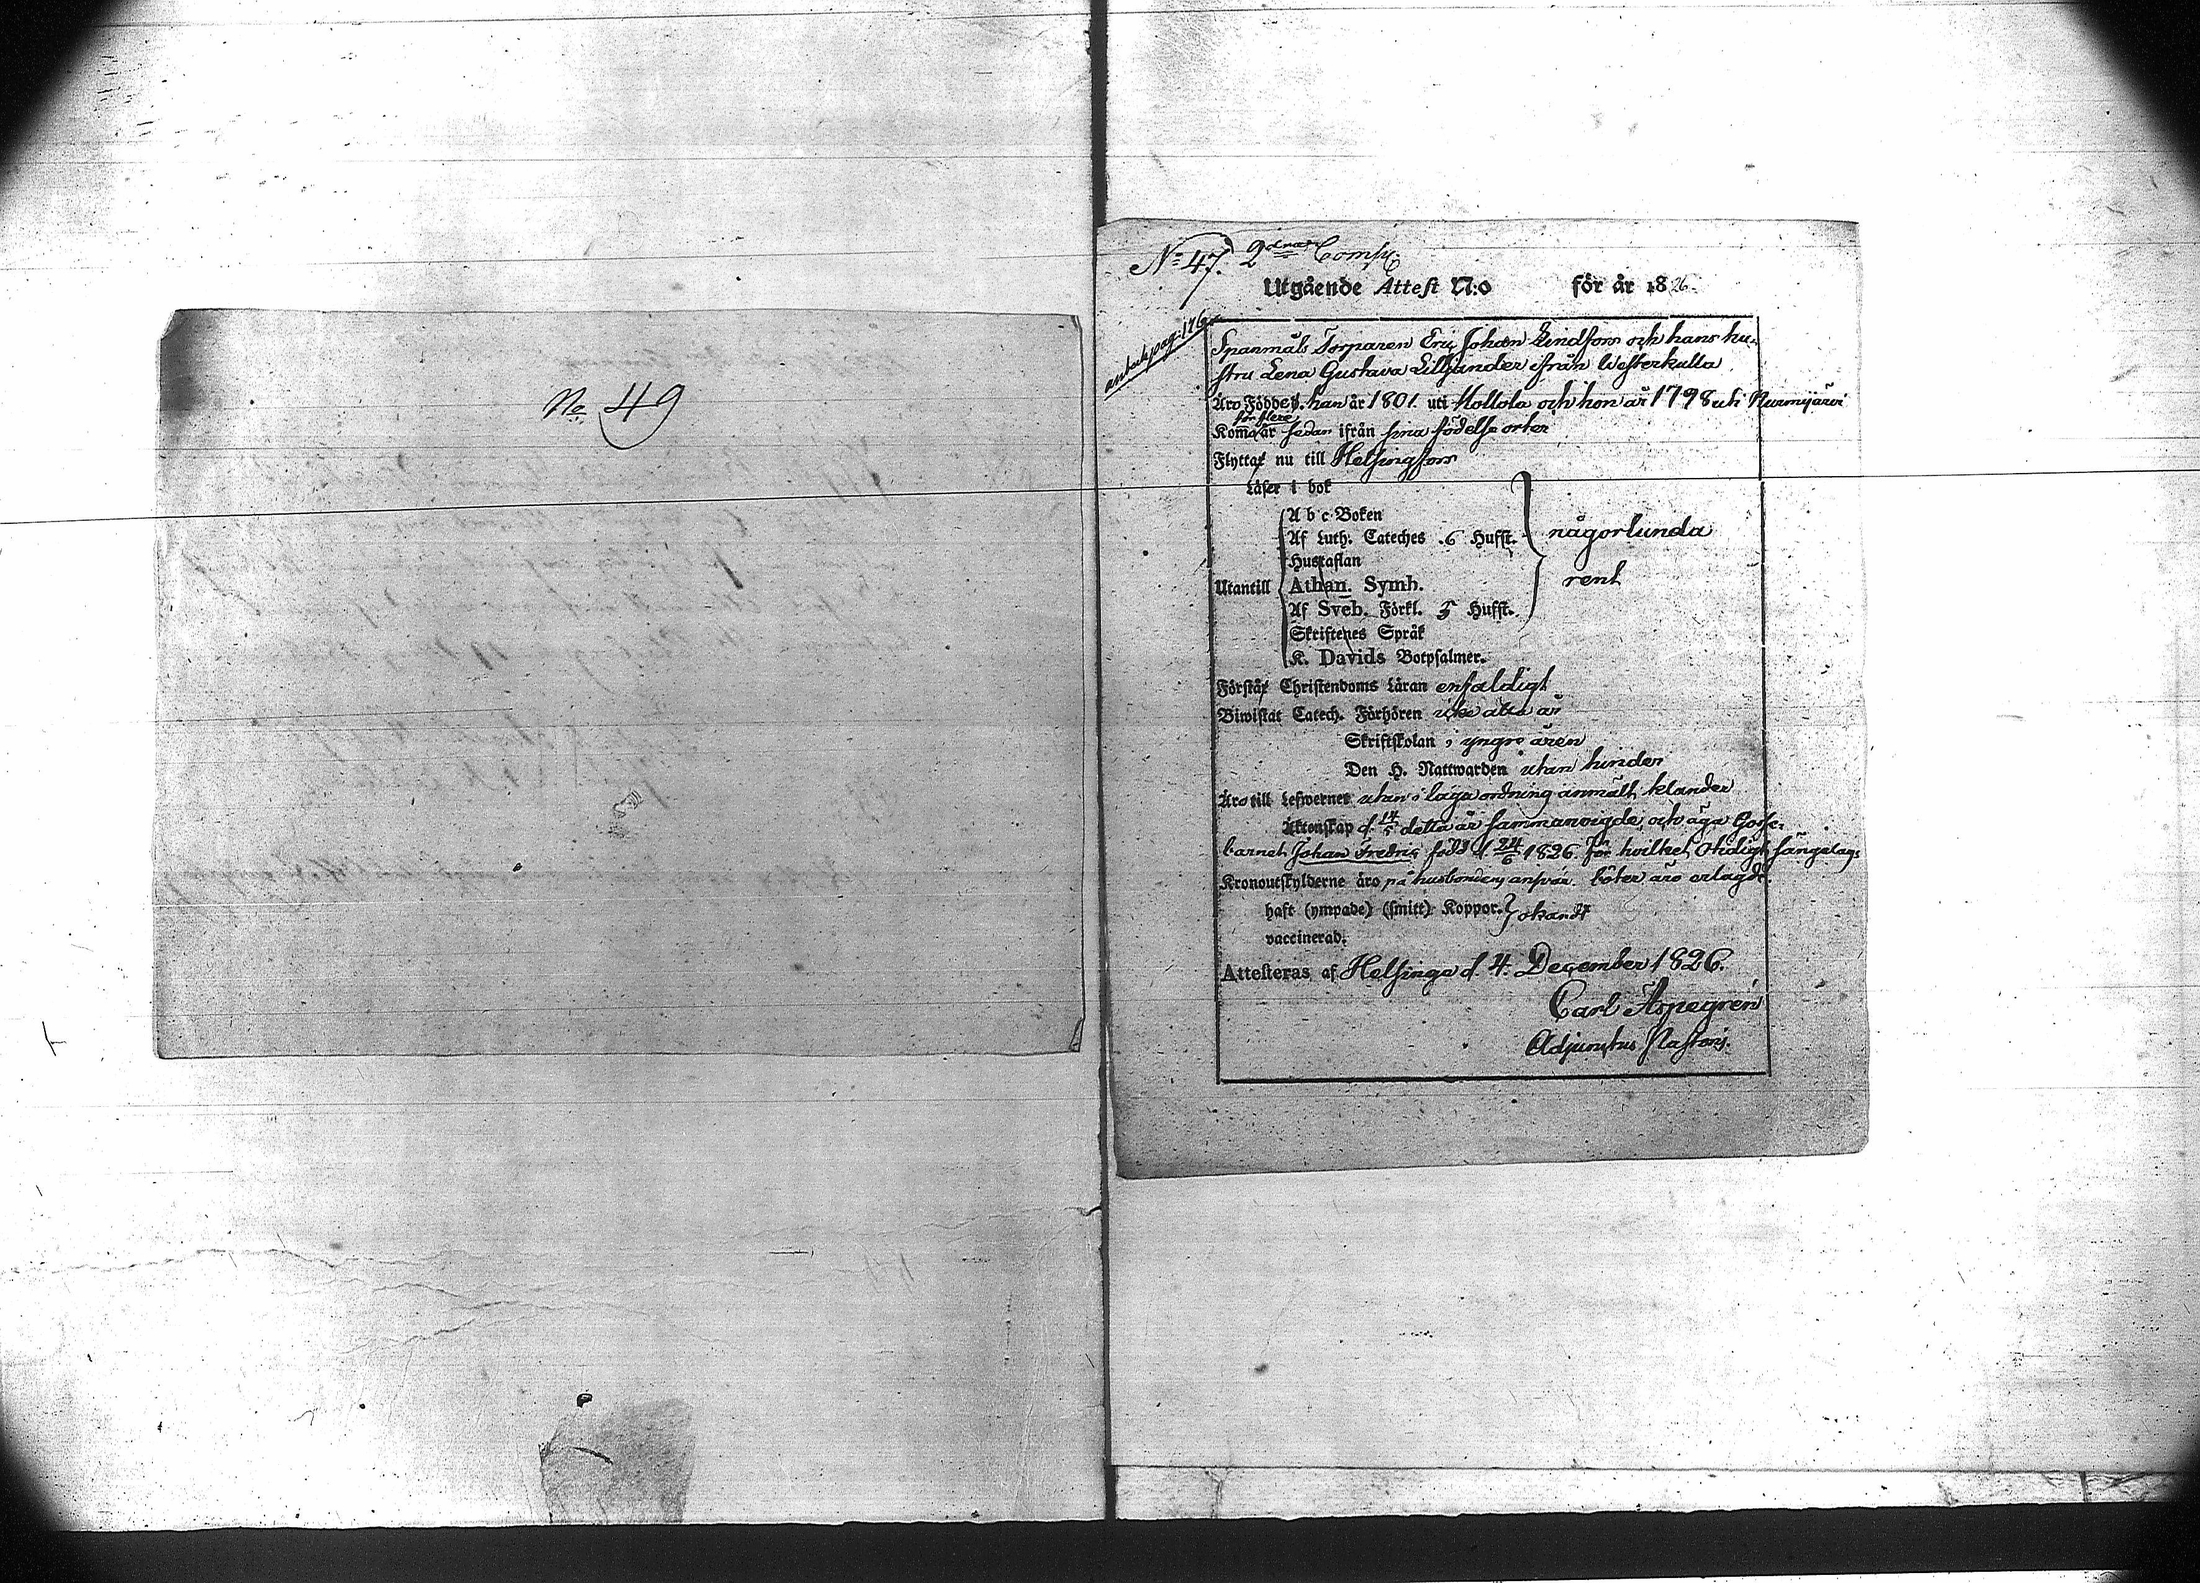 No. 49
No 47. 2dnar Comp.
Utgående Attest N:o för år 1826.
anteckn. pag. 176
Spanmåls Torparen Eric Johan Lindfors och hans hu-
stru Lena Gustava Lilljander ifrån Westerkulla
Äro Födde, han år 1801. uti Hollola och hon år 1798 uti Nurmijärvi
för flere
Komo år sedan ifrån sina födelse orter
Flytta nu till Helsingfors
Läser i bok
A b c Boken
någorlunda
Af Luth. Cateches 6 Hufst.
Hustaflan
rent
Utantill Athan. Symb.
Af Sveb. Förkl. 5 Hufst.
Skriftenes Språk
K. Davids Botpsalmer.
Förstå Christendoms Läran enfaldigt
Biwistat Catech. Förhören icke alla år
Skriftskolan i yngre åren
Den H. Nattwarden utan hinder
Äro till Lefwernet utan i laga ordning anmält klander
Äktenskap d. 14/5 detta år sammanvigde, och äga Gosse-
barnet Johan Fredric född d. 24/6 1826. för hvilket otidigt sängelags
Kronoutskylderne äro på husbondens ansvar. böter äro erlagde.
haft (ympade) (smitt) Koppor. okändt
vaccinerad.
Attesteras af Helsinge d. 4. December 1826.
Carl Aspegren
Adjunctus Pastoris.